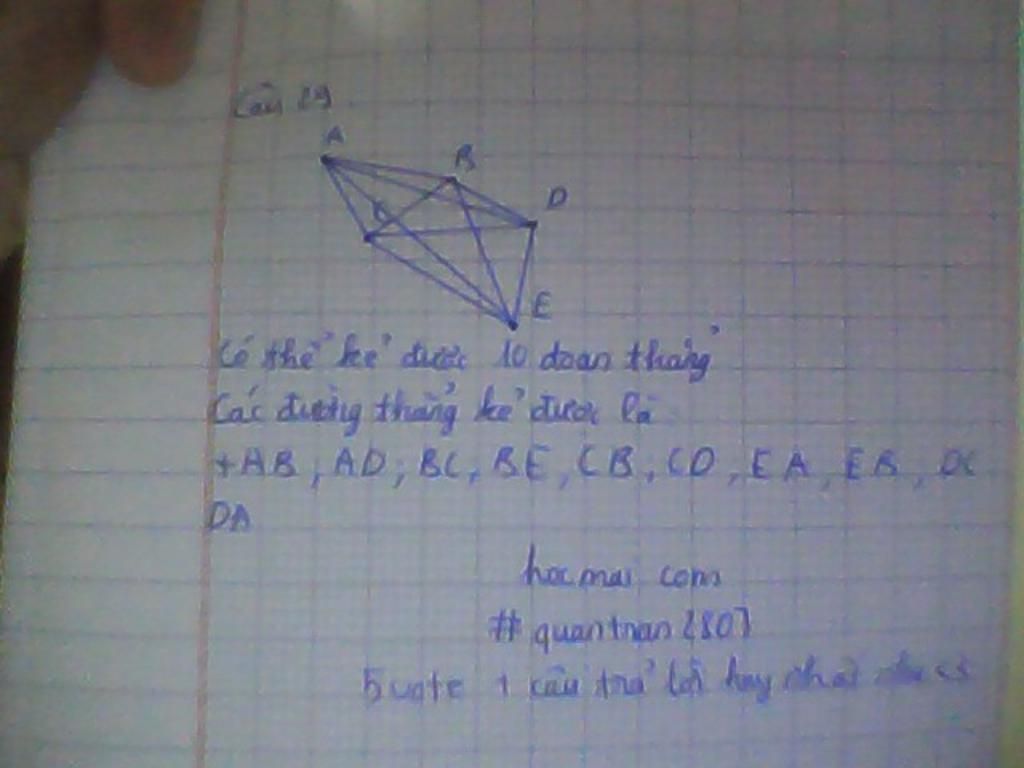 Câu 29
A
B
D
C
E
Có thể kẻ được 10 đoạn thẳng
Các đường thẳng kẻ được là
+AB, AD, BC, BE, CB, CD, EA, EB, DC
DA
hocmai com
# quantran 2807
5 vote + câu trả lời hay nhất